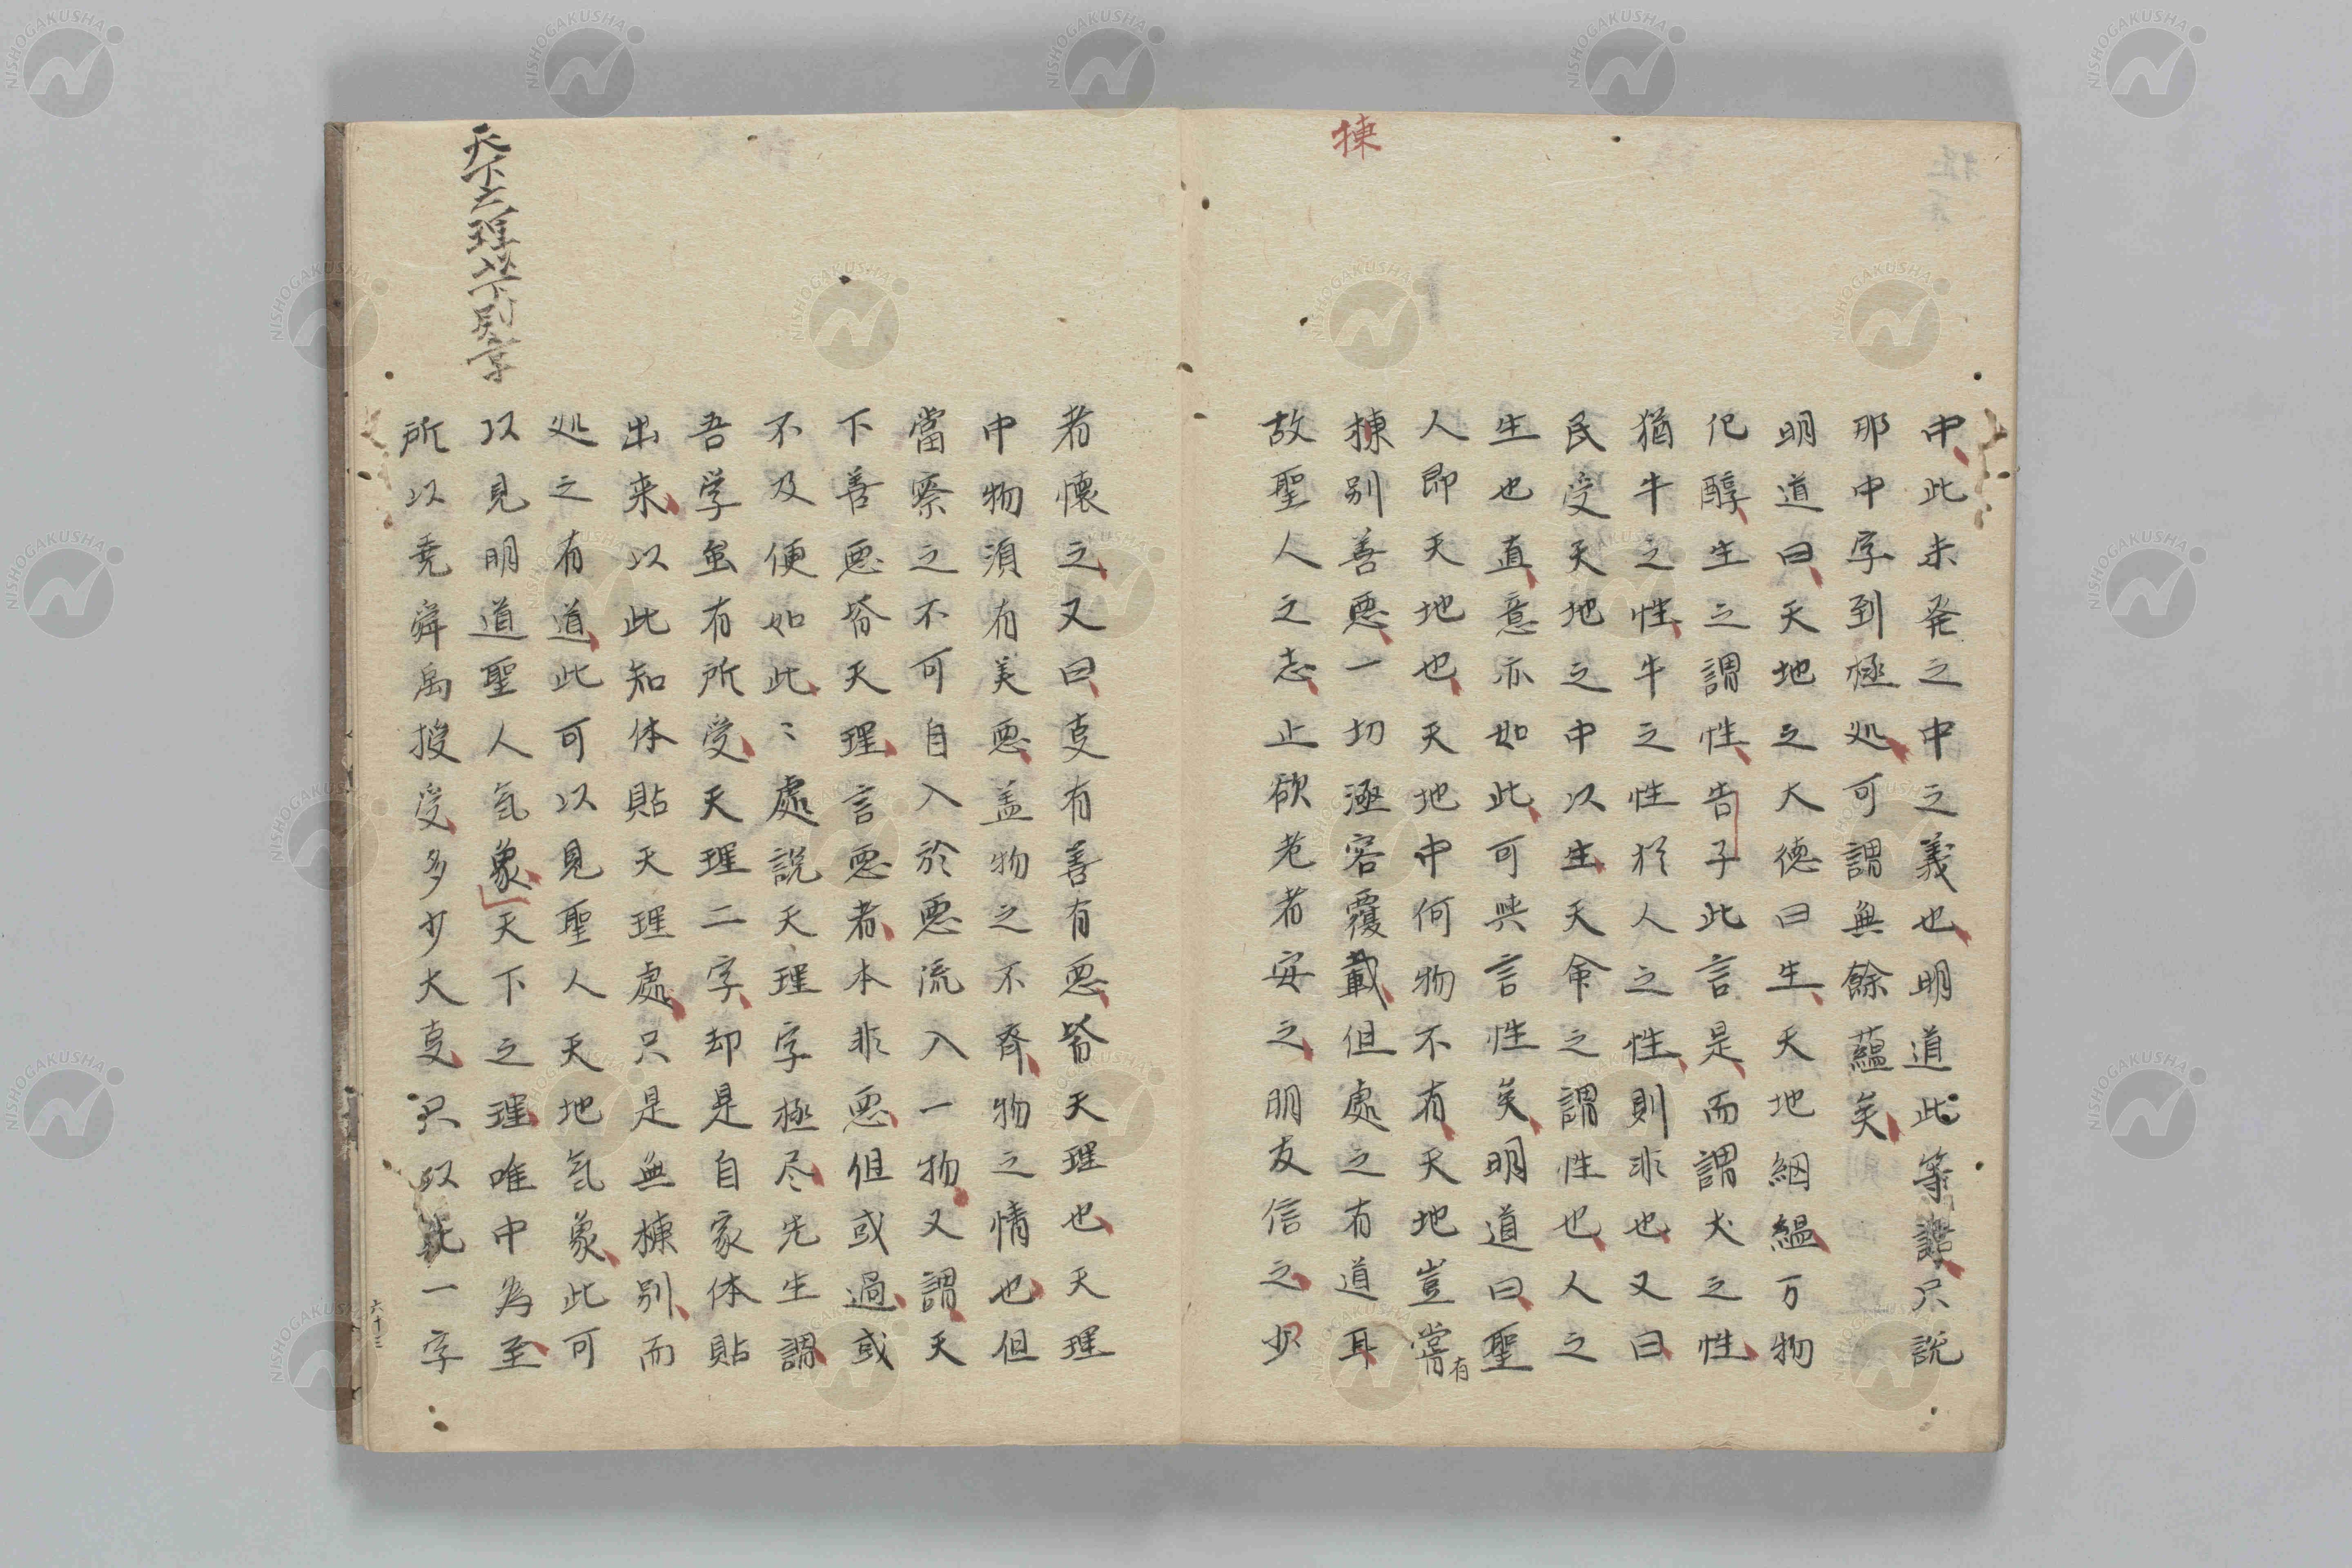 揀
中此未発之中之義也明道此等語只説
那中字到極処可謂無餘蘊矣
明道曰天地之大徳曰生天地絪縕万物
化醇生之謂性告子此言是而謂犬之性
猶牛之性牛之性猶人之性則非也又曰
民受天地之中以生天命之謂性也人之
生也直意亦如此可与言性矣明道曰聖
人即天地也天地中何物不有天地豈嘗有
揀別善悪一切涵容覆載但處之有道耳
故聖人之志止欲老者安之朋友信之少
者懐之又曰事有善有悪皆天理也天理
中物須有美悪盖物之不齊物之情也但
當察之不可自入於悪流入一物又謂天
下善悪皆天理言悪者本非悪但或過或
不及便如此〻處説天理字極尽先生謂
吾学虽有所受天理二字却是自家体貼
出来以此知体貼天理處只是無揀別而
処之有道此可以見聖人天地気象此可
以見明道聖人気象天下之理唯中為至
所以堯舜禹授受多少大事只以此一字
天下之理
六十三
NISHOGAKUSHA